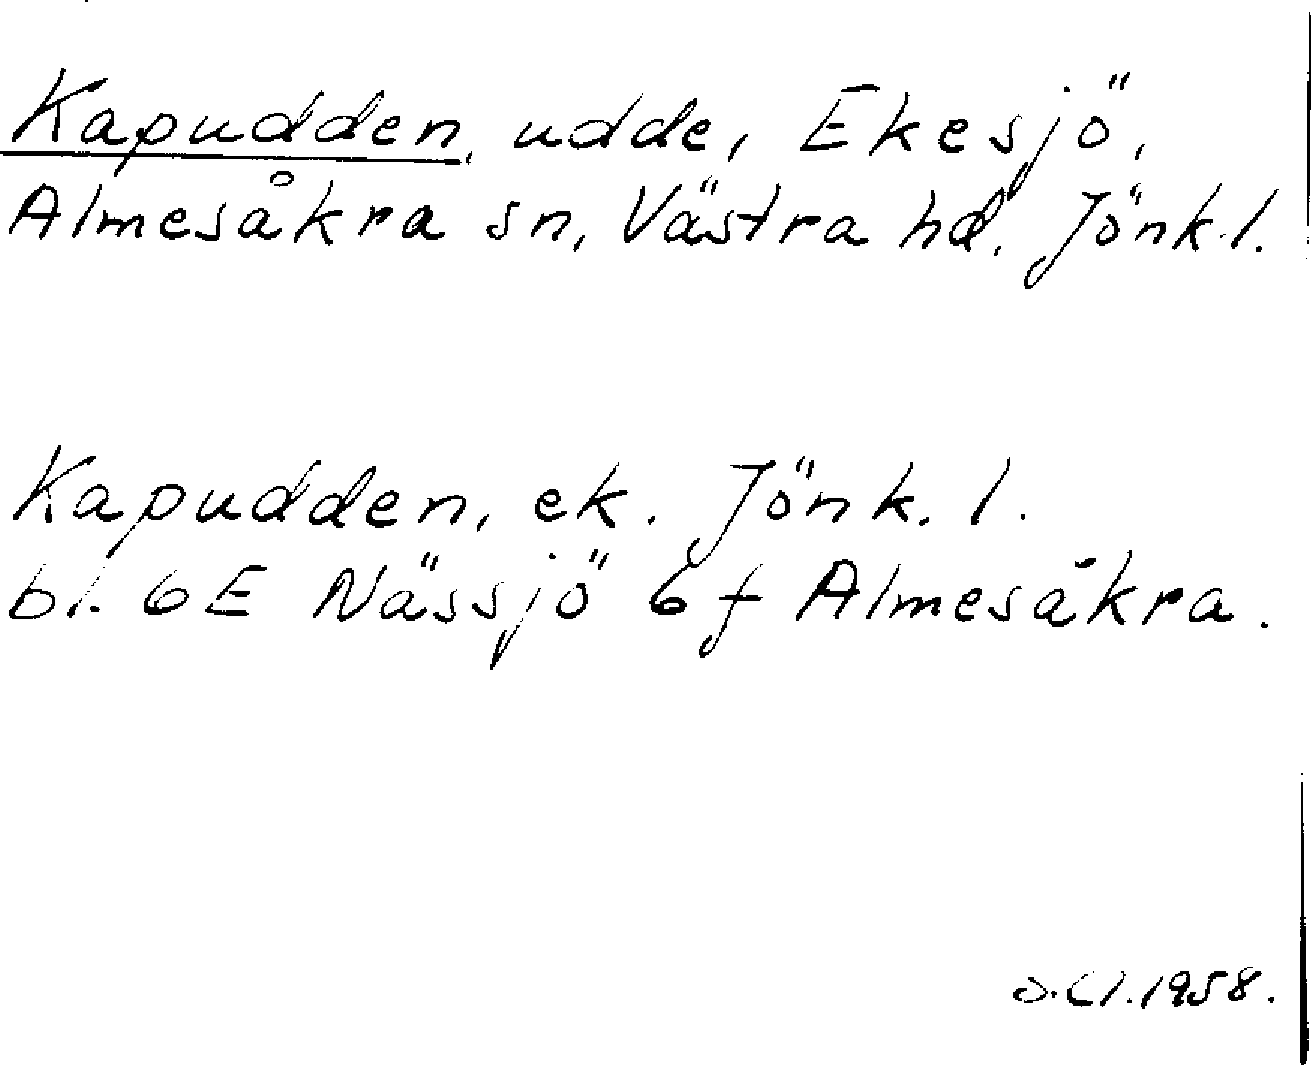 Kapudden, udde, Ekesjö,
Almesåkra sn, Västra hd, Jönk. l.
Kapudden, ek. Jönk. l.
bl. 6E Nässjö 6f Almesåkra.
1958.